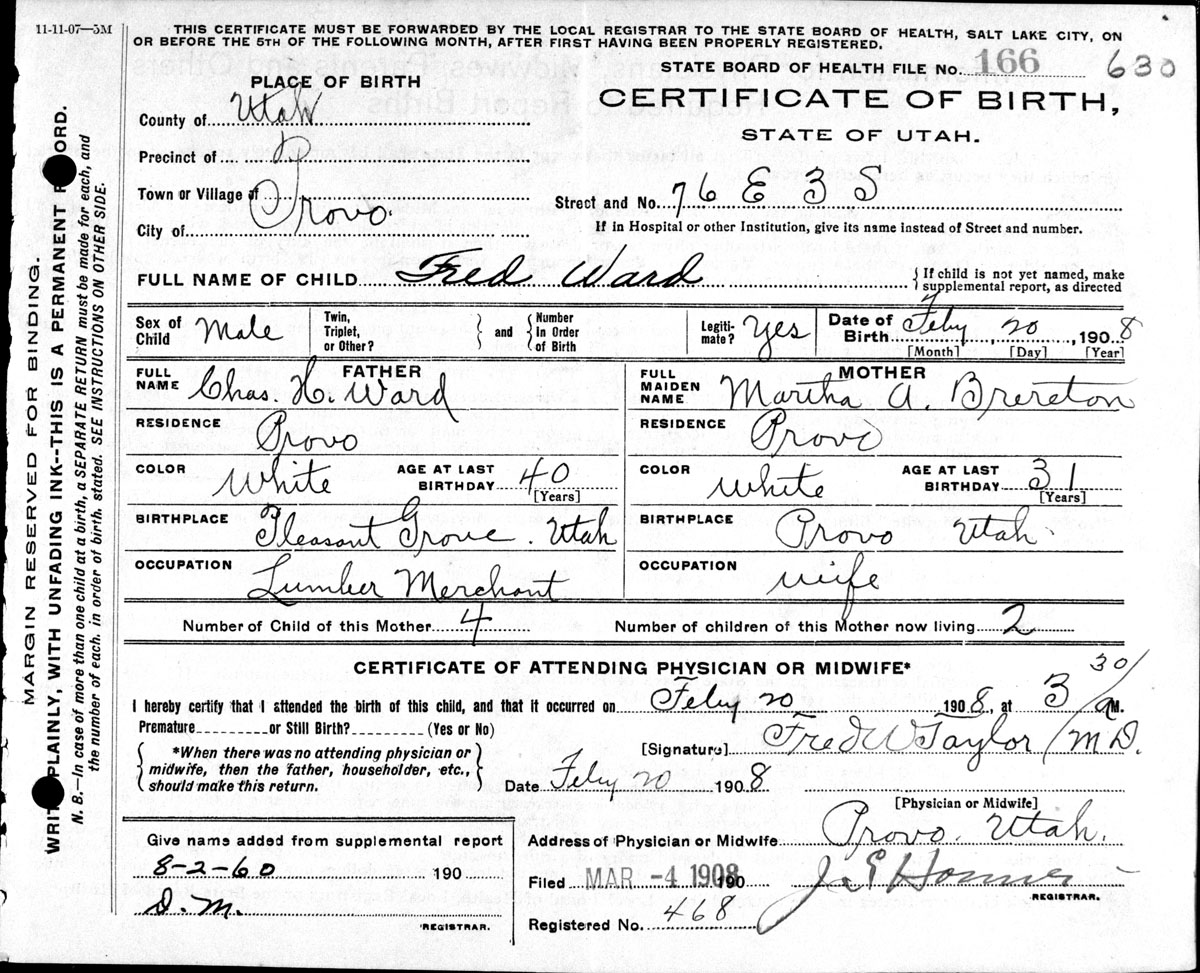 11-11-07—5M
THIS CERTIFICATE MUST BE FORWARDED BY THE LOCAL REGISTRAR TO THE STATE BOARD OF HEALTH, SALT LAKE CITY, ON
OR BEFORE THE 5TH OF THE FOLLOWING MONTH, AFTER FIRST HAVING BEEN PROPERLY REGISTERED.
STATE BOARD OF HEALTH FILE No. 166 630
CERTIFICATE OF BIRTH,
STATE OF UTAH.
PLACE OF BIRTH
County of Utah
Precinct of
Town or Village of
City of Provo.
Street and No. 76 E 3 S
If in Hospital or other Institution, give its name instead of Street and number.
FULL NAME OF CHILD Fred Ward
{If child is not yet named, make
supplemental report, as directed
Sex of Child Male
Twin, Triplet, or Other? } and { Number In Order of Birth
Legiti-mate? Yes
Date of Birth Feby 20, 1908
[Month] [Day] [Year]
FATHER
FULL NAME Chas. H. Ward
RESIDENCE Provo
COLOR White AGE AT LAST BIRTHDAY 40
[Years]
BIRTHPLACE Pleasant Grove. Utah
OCCUPATION Lumber Merchant
MOTHER
FULL MAIDEN NAME Martha A. Brereton
RESIDENCE Provo
COLOR White AGE AT LAST BIRTHDAY 31
[Years]
BIRTHPLACE Provo Utah.
OCCUPATION wife
Number of Child of this Mother 4 Number of children of this Mother now living 2
CERTIFICATE OF ATTENDING PHYSICIAN OR MIDWIFE*
I hereby certify that I attended the birth of this child, and that it occurred on Feby 20 1908, at 3 30/ a M.
Premature or Still Birth? (Yes or No)
{*When there was no attending physician or
midwife, then the father, householder, etc.,
should make this return.}
[Signature] Fred W Taylor / M.D.
Date Feby 20 1908
[Physician or Midwife]
Give name added from supplemental report
8-2-60 190
D. M.
REGISTRAR.
Address of Physician or Midwife Provo. Utah.
Filed MAR -4 1908 190
REGISTRAR.
Registered No. 468
MARGIN RESERVED FOR BINDING.
PLAINLY, WITH UNFADING INK--THIS IS A PERMANENT
N. B.—In case of more than one child at a birth, a SEPARATE RETURN must be made for each, and
the number of each, in order of birth, stated. SEE INSTRUCTIONS ON OTHER SIDE.